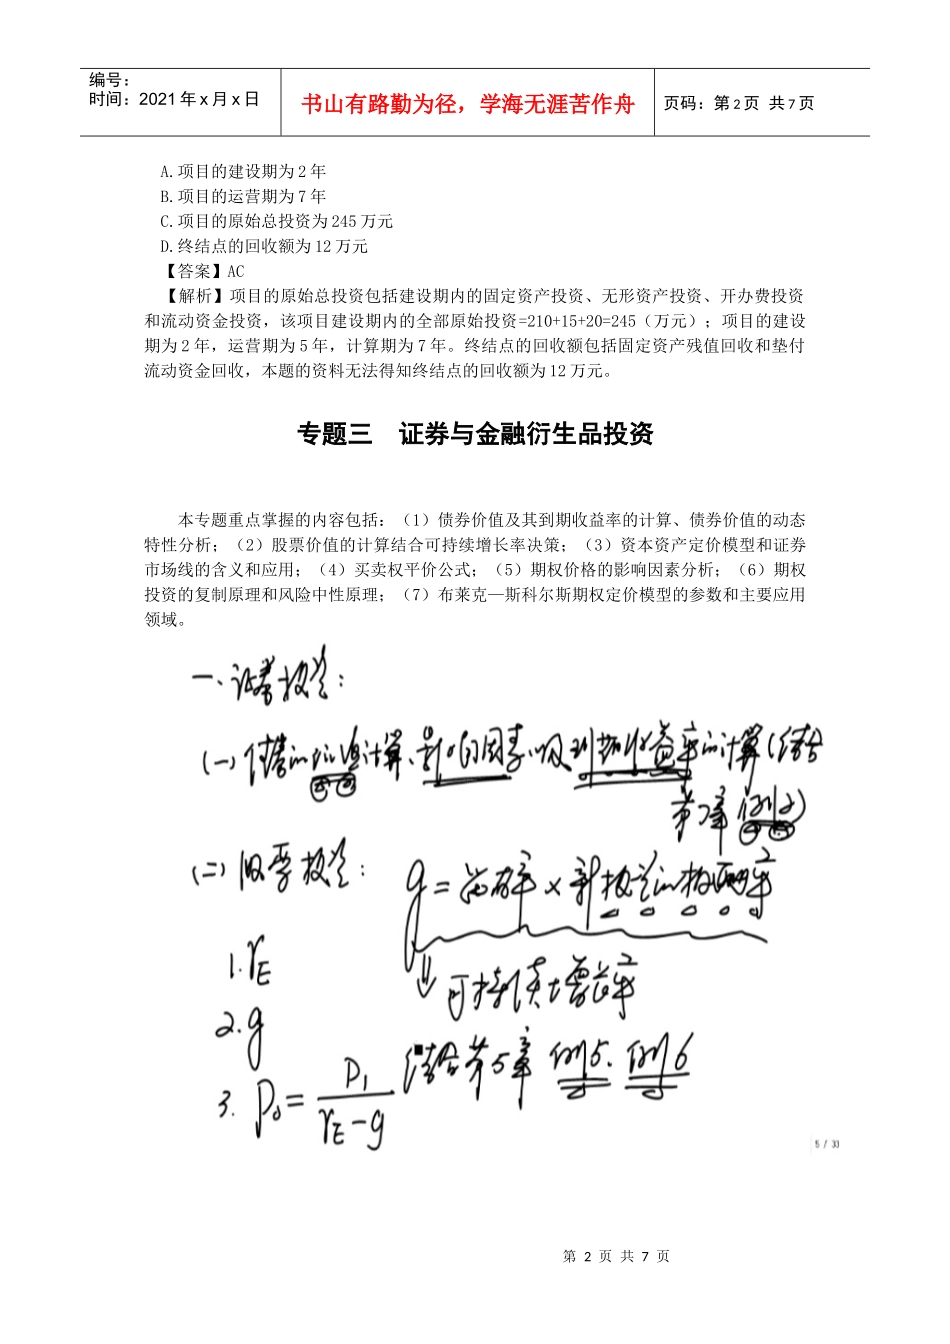 编号：
时间：2021年x月x日
书山有路勤为径，学海无涯苦作舟
页码：第2页 共7页
A.项目的建设期为2年
B.项目的运营期为7年
C.项目的原始总投资为245万元
D.终结点的回收额为12万元
【答案】AC
【解析】项目的原始总投资包括建设期内的固定资产投资、无形资产投资、开办费投资
和流动资金投资，该项目建设期内的全部原始投资=210+15+20=245（万元）；项目的建设
期为2年，运营期为5年，计算期为7年。终结点的回收额包括固定资产残值回收和垫付
流动资金回收，本题的资料无法得知终结点的回收额为12万元。
专题三 证券与金融衍生品投资
本专题重点掌握的内容包括：（1）债券价值及其到期收益率的计算、债券价值的动态
特性分析；（2）股票价值的计算结合可持续增长率决策；（3）资本资产定价模型和证券
市场线的含义和应用；（4）买卖权平价公式；（5）期权价格的影响因素分析；（6）期权
投资的复制原理和风险中性原理；（7）布莱克—斯科尔斯期权定价模型的参数和主要应用
领域。
一、证券投资：
(一)债券的价值计算、影响因素以及到期收益率的计算(结合
第 章 例2)
(二)股票投资：
g=留存率×新投资的权益 率
可持续增长率
1. rE
2. g
3. P0= D1/(rE-g)
结合第5章 例5. 例6
5 / 33
第 2 页 共 7 页